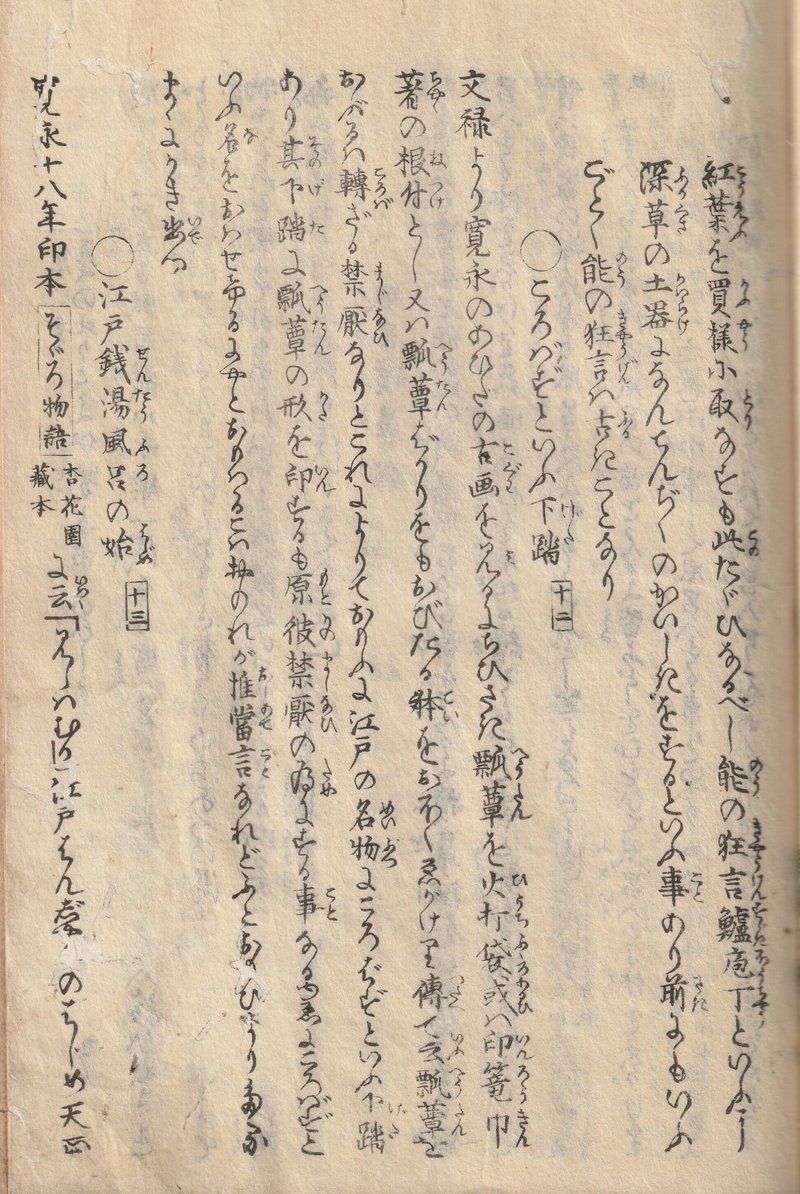 紅葉を買様に取なすも此たぐひなるべし能の狂言鱸庖丁といふに
深草の土器になんちんぢくのかいしきをするといふ事あり前にもいふ
ごとく能の狂言は古きことなり
○ころばずといふ下踏 十二
文禄より寛永のあひだの古画を見るにちひさき瓢蕈を火打袋或は印篭巾
著の根付とし又は瓢蕈ばかりをもおびたる体をおほく画がけり傳て云瓢蕈を
おぶるは轉ざる禁厭なりとこれによりておもふに江戸の名物にころばずといふ下踏
あり其下踏に瓢蕈の形を印するも原彼禁厭の為にする事なる故にころばずと
いふ名をおはせたるにやとおもはるこはおのれが推當言なれどふとおもひよりたる
まゝにかき出つ
○江戸銭湯風呂の始 十三
寛永十八年印本 そゞろ物語 杏花園蔵本 に云「見しはむかし江戸はん昌のはじめ天正